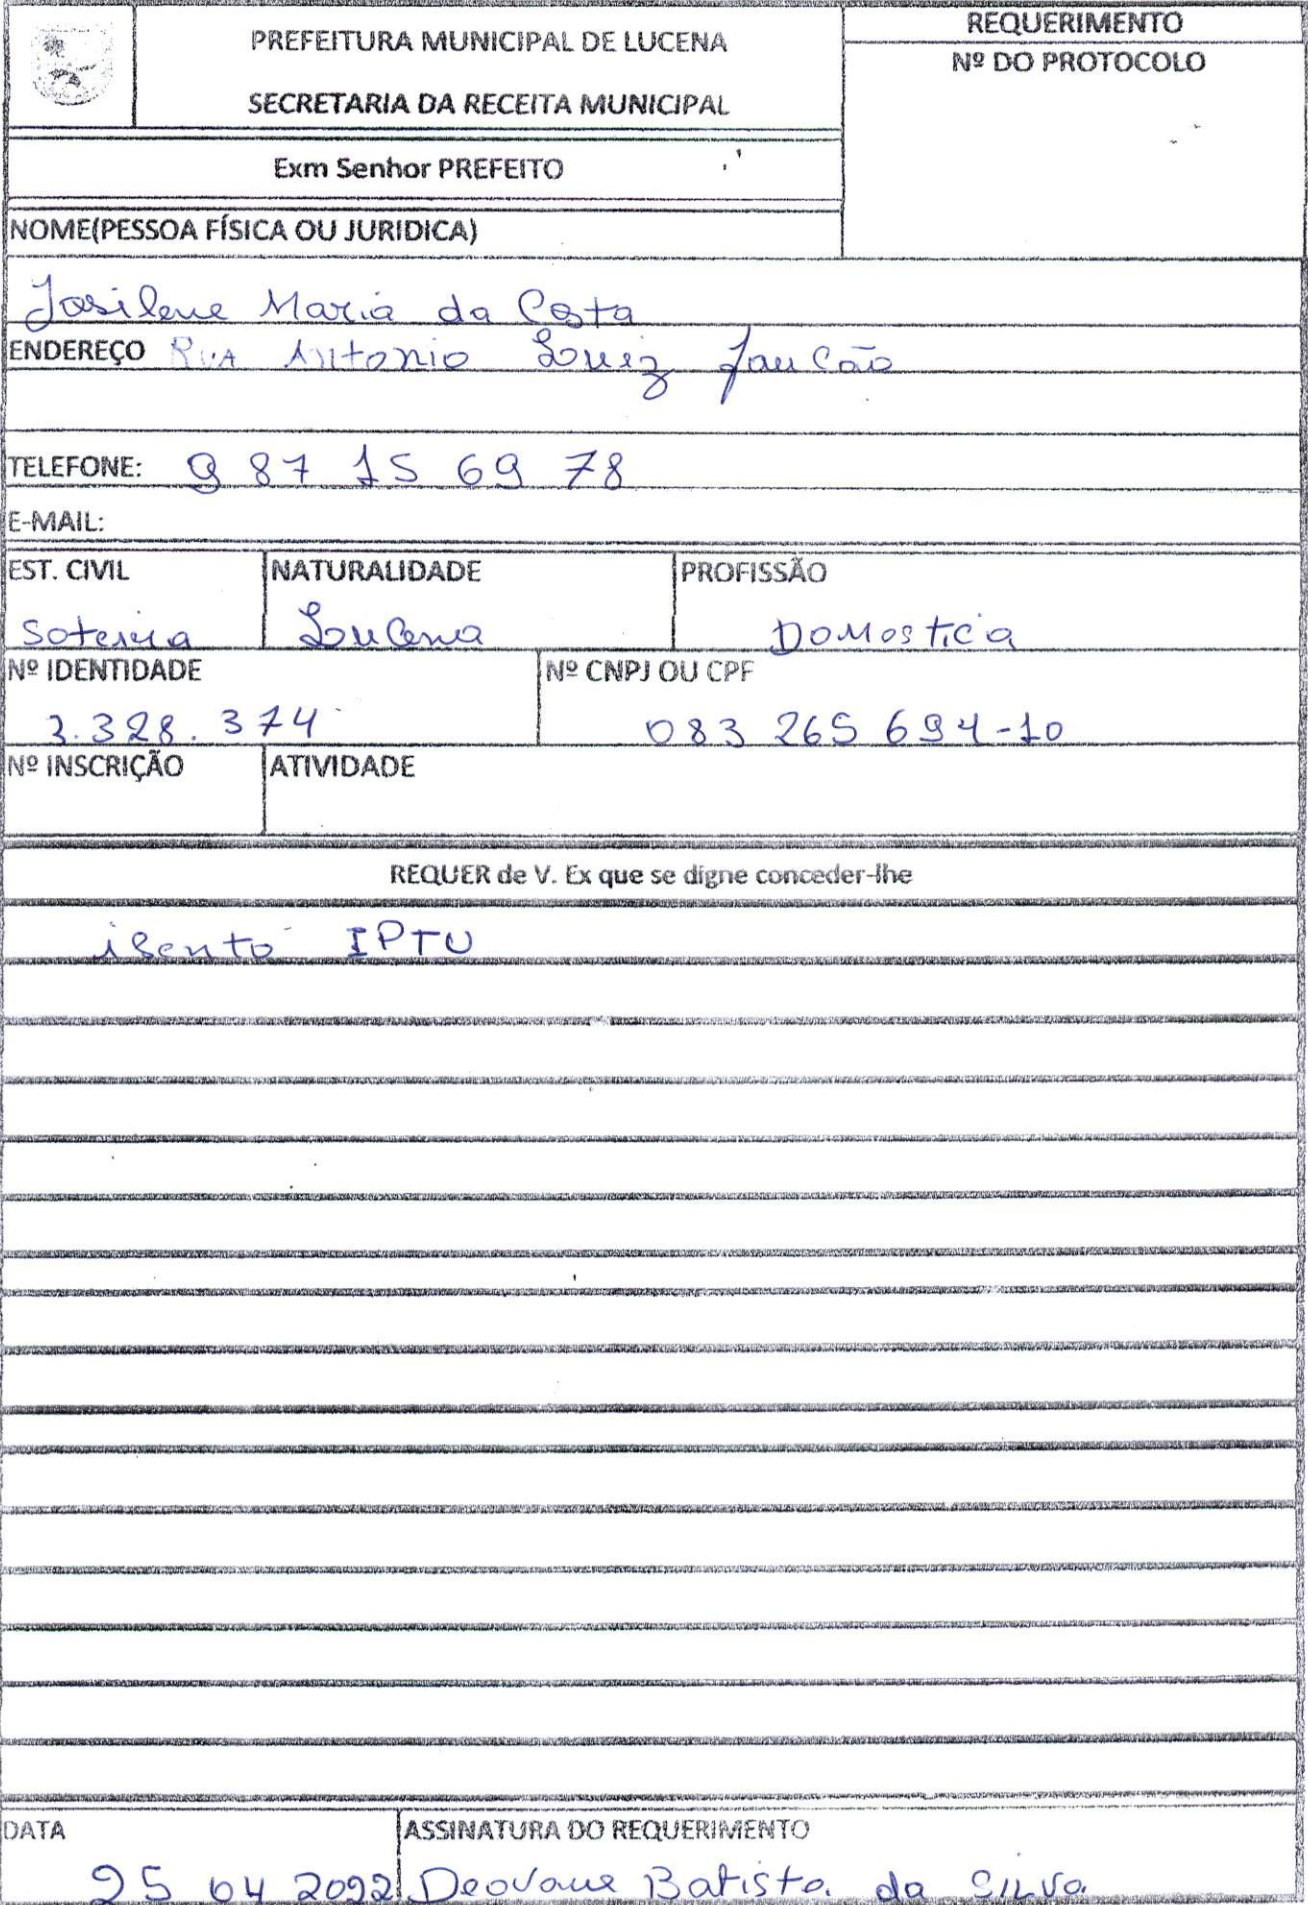 PREFEITURA MUNICIPAL DE LUCENA
SECRETARIA DA RECEITA MUNICIPAL
REQUERIMENTO
Nº DO PROTOCOLO
Exm Senhor PREFEITO
NOME(PESSOA FÍSICA OU JURIDICA)
Josilene Maria da Costa
ENDEREÇO RUA Antonio Louiz
TELEFONE: 9 87 15 69 78
E-MAIL:
EST. CIVIL NATURALIDADE PROFISSÃO
Soteira Loucena Domostica
Nº IDENTIDADE Nº CNPJ OU CPF
3.328.374 083 265 694-10
Nº INSCRIÇÃO ATIVIDADE
REQUER de V. Ex que se digne conceder-lhe
isento IPTU
DATA ASSINATURA DO REQUERIMENTO
25 04 2022 Deovane Batista da Silva